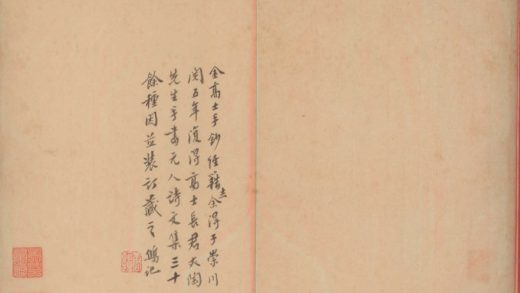 金高士手鈔經籍志余得于學川
閱五年復得高士長君大陶
先生手書元人詩文集三十
餘種因並裝訂藏之 記